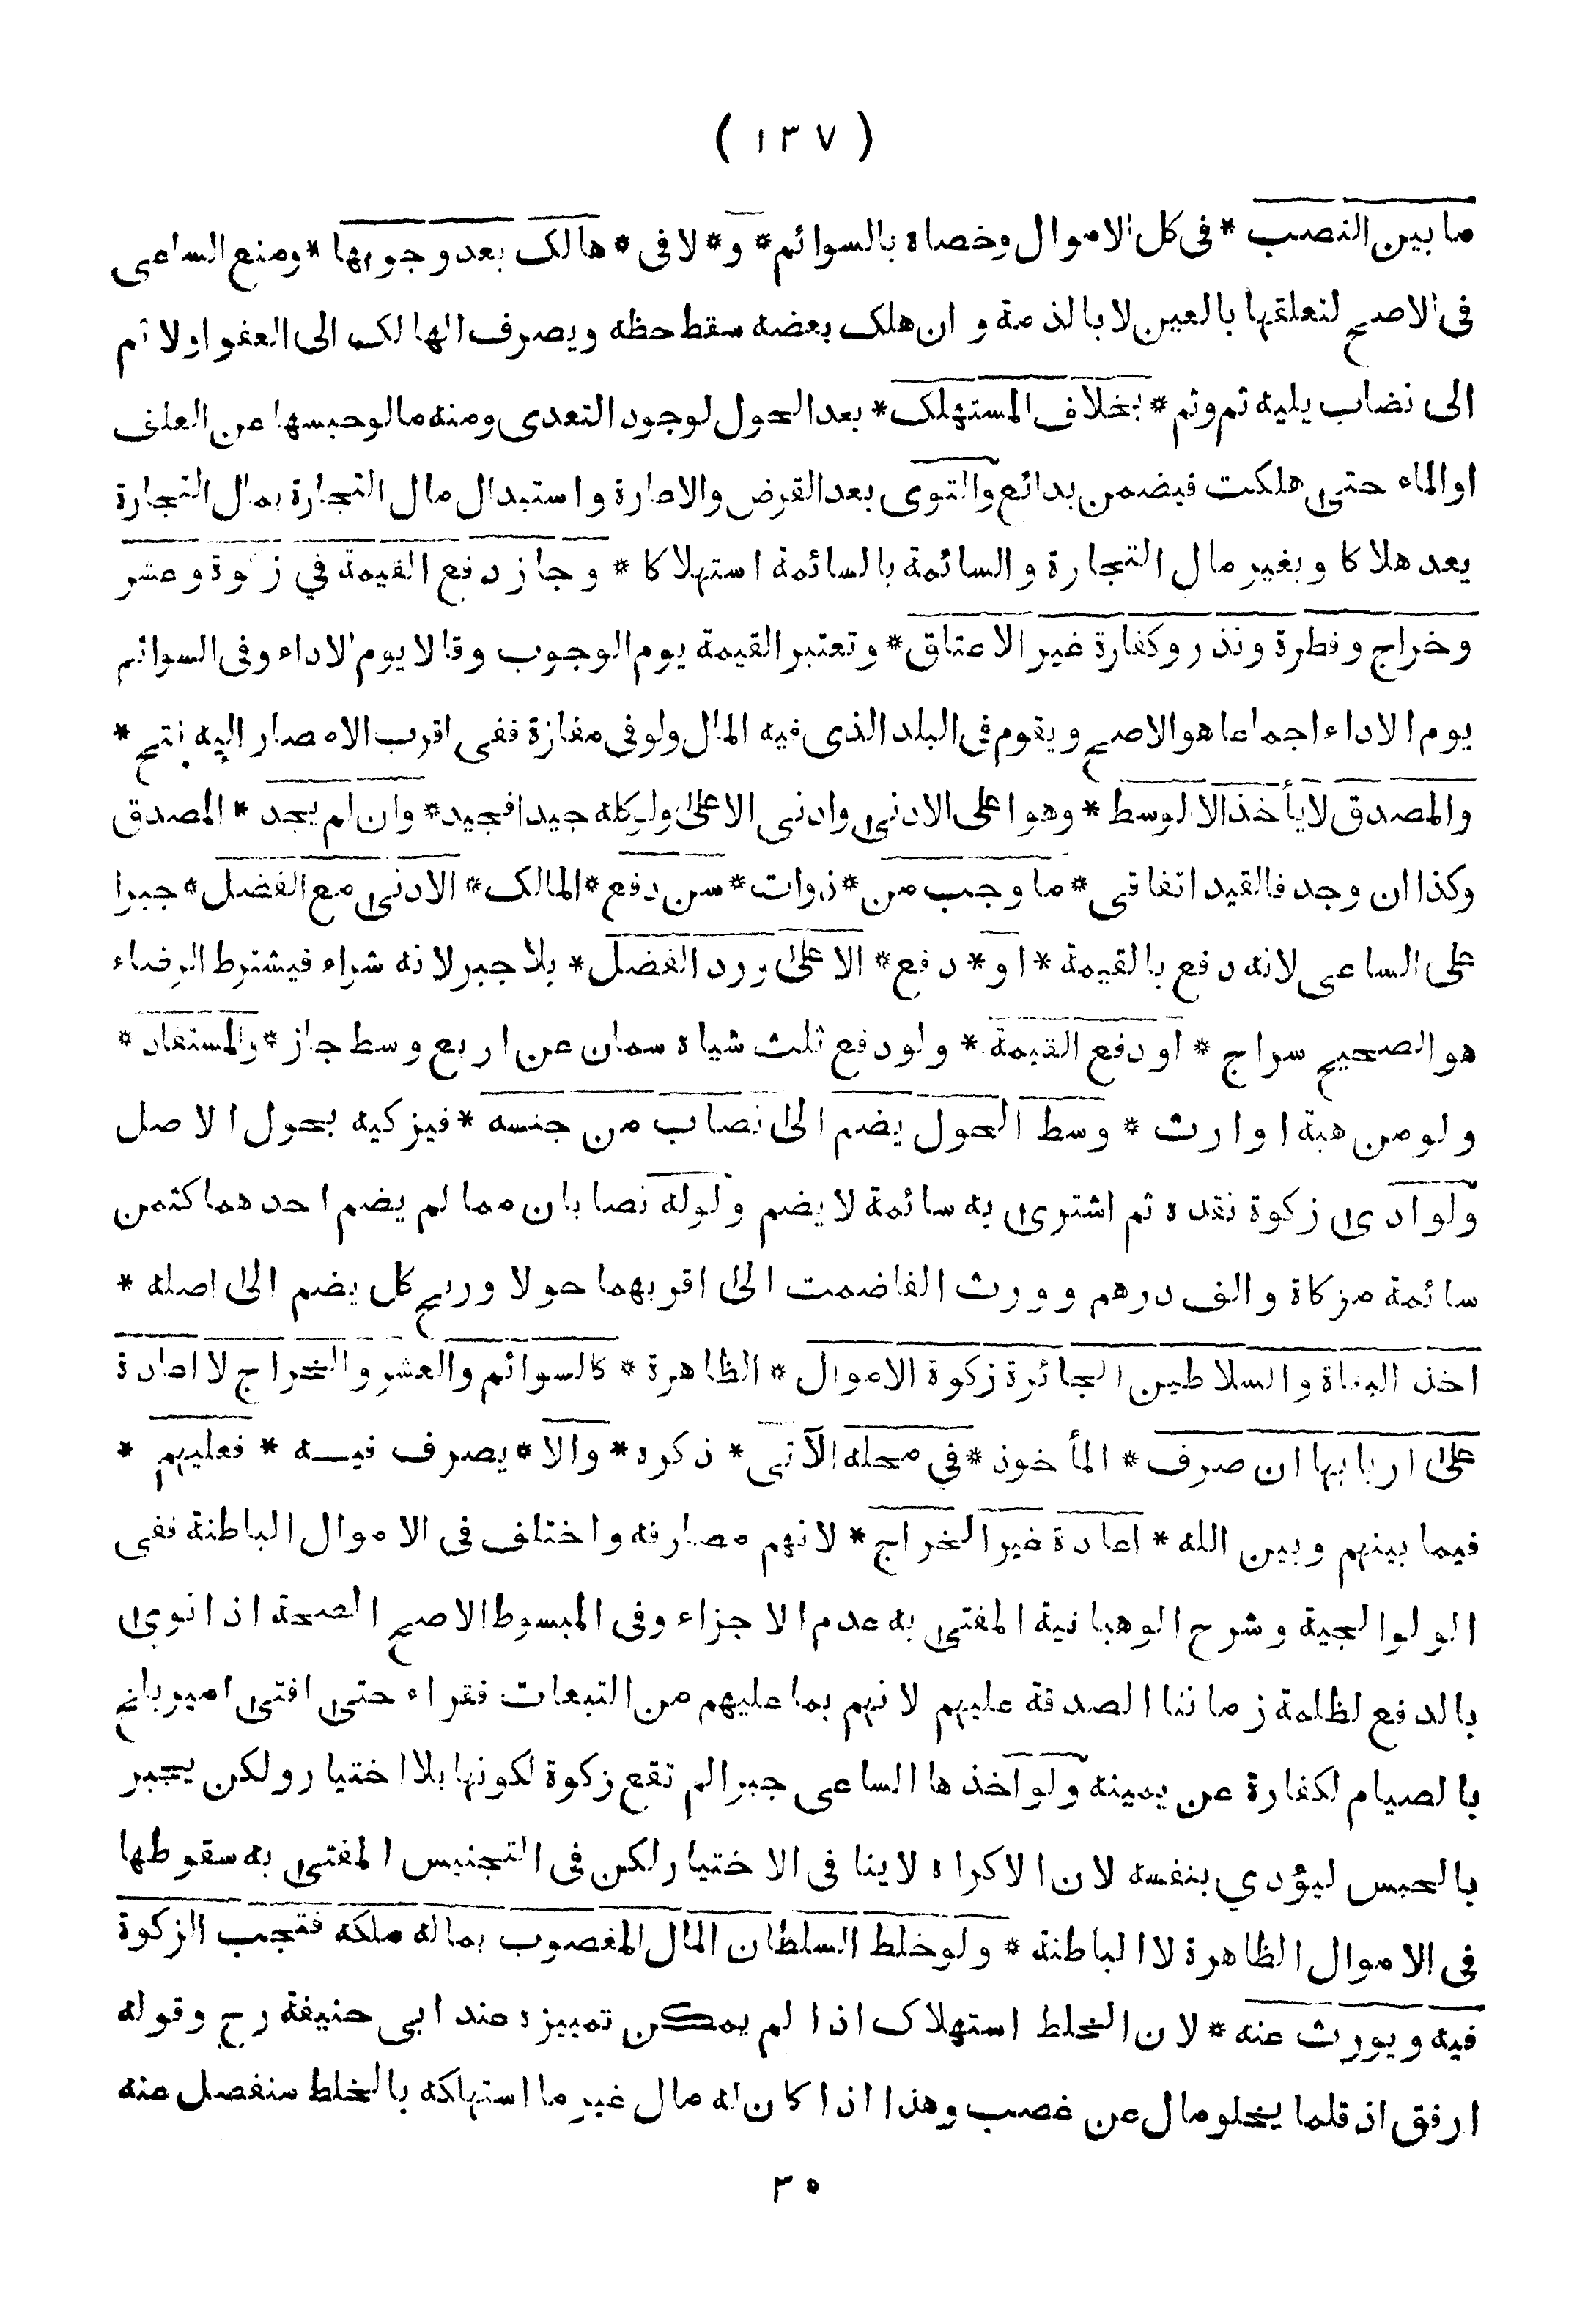 ( ١٣٧ )
مابين النصب * فى كل الاموال وخصاه بالسوائم * و * لا فى * هالك بعد وجوبها * ومنع الساعى
فى الاصح لتعلقها بالعين لا بالذمة و ان هلك بعضه سقط حظه ويصرف الهالك الى العفو اولا ثم
الى نصاب يليه ثم وثم * بخلاف المستهلك * بعد الحول لوجود التعدى ومنه مالو حبسها عن العلف
او الماء حتى هلكت فيضمن بدائع والتوى بعد القرض والاعارة واستبدال مال التجارة بمال التجارة
يعد هلاكا وبغير مال التجارة والسائمة بالسائمة استهلاكا * وجاز دفع القيمة في زكوة وعشر
وخراج وفطرة ونذر وكفارة غير الاعتاق * وتعتبر القيمة يوم الوجوب وقالا يوم الاداء وفى السوائم
يوم الاداء اجماعا هو الاصح ويقوم فى البلد الذى فيه المال ولو فى مفازة ففى اقرب الامصار اليه فتح *
والمصدق لا يأخذ الا الوسط * وهو اعلى الادنى وادنى الاعلى ولو كله جيدا فجيد * وان لم يجد * المصدق
وكذا ان وجد فالقيد اتفاقى * ما وجب من * ذوات * سن دفع * المالك * الادنى مع الفضل * جبرا
على الساعى لانه دفع بالقيمة * او * دفع * الاعلى ورد الفضل * بلا جبر لانه شراء فيشترط الرضاء
هو الصحيح سراج * او دفع القيمة * ولو دفع ثلث شياه سمان عن اربع وسط جاز * والمستفاد *
ولو من هبة او ارث * وسط الحول يضم الى نصاب من جنسه * فيزكيه بحول الاصل
ولو ادى زكوة نقده ثم اشترى به سائمة لا يضم ولو له نصابان مما لم يضم احدهما كثمن
سائمة مزكاة والف درهم وورث الفا ضمت الى اقربهما حولا وربح كل يضم الى اصله *
اخذ البغاة والسلاطين الجائرة زكوة الاموال * الظاهرة * كالسوائم والعشر والخراج لا اعادة
على اربابها ان صرف * المأخوذ * في محله الآتى * ذكره * والا * يصرف فيه * فعليهم *
فيما بينهم وبين الله * اعادة غير الخراج * لانهم مصارفه واختلف فى الاموال الباطنة ففى
الولوالجية وشرح الوهبانية المفتى به عدم الاجزاء وفى المبسوط الاصح الصحة اذا نوى
بالدفع لظلمة زماننا الصدقة عليهم لانهم بما عليهم من التبعات فقراء حتى افتى امير بلخ
بالصيام لكفارة عن يمينه ولو اخذها الساعى جبرا لم تقع زكوة لكونها بلا اختيار ولكن يجبر
بالحبس ليؤدي بنفسه لان الاكراه لاينا فى الاختيار لكن فى التجنيس المفتى به سقوطها
فى الاموال الظاهرة لا الباطنة * ولو خلط السلطان المال المغصوب بماله ملكه فتجب الزكوة
فيه ويورث عنه * لان الخلط استهلاك اذا لم يمكن تمييزه عند ابى حنيفة رح وقوله
ارفق اذ قلما يخلو مال عن غصب وهذا اذا كان له مال غير ما استهلكه بالخلط منفصل عنه
٣٥